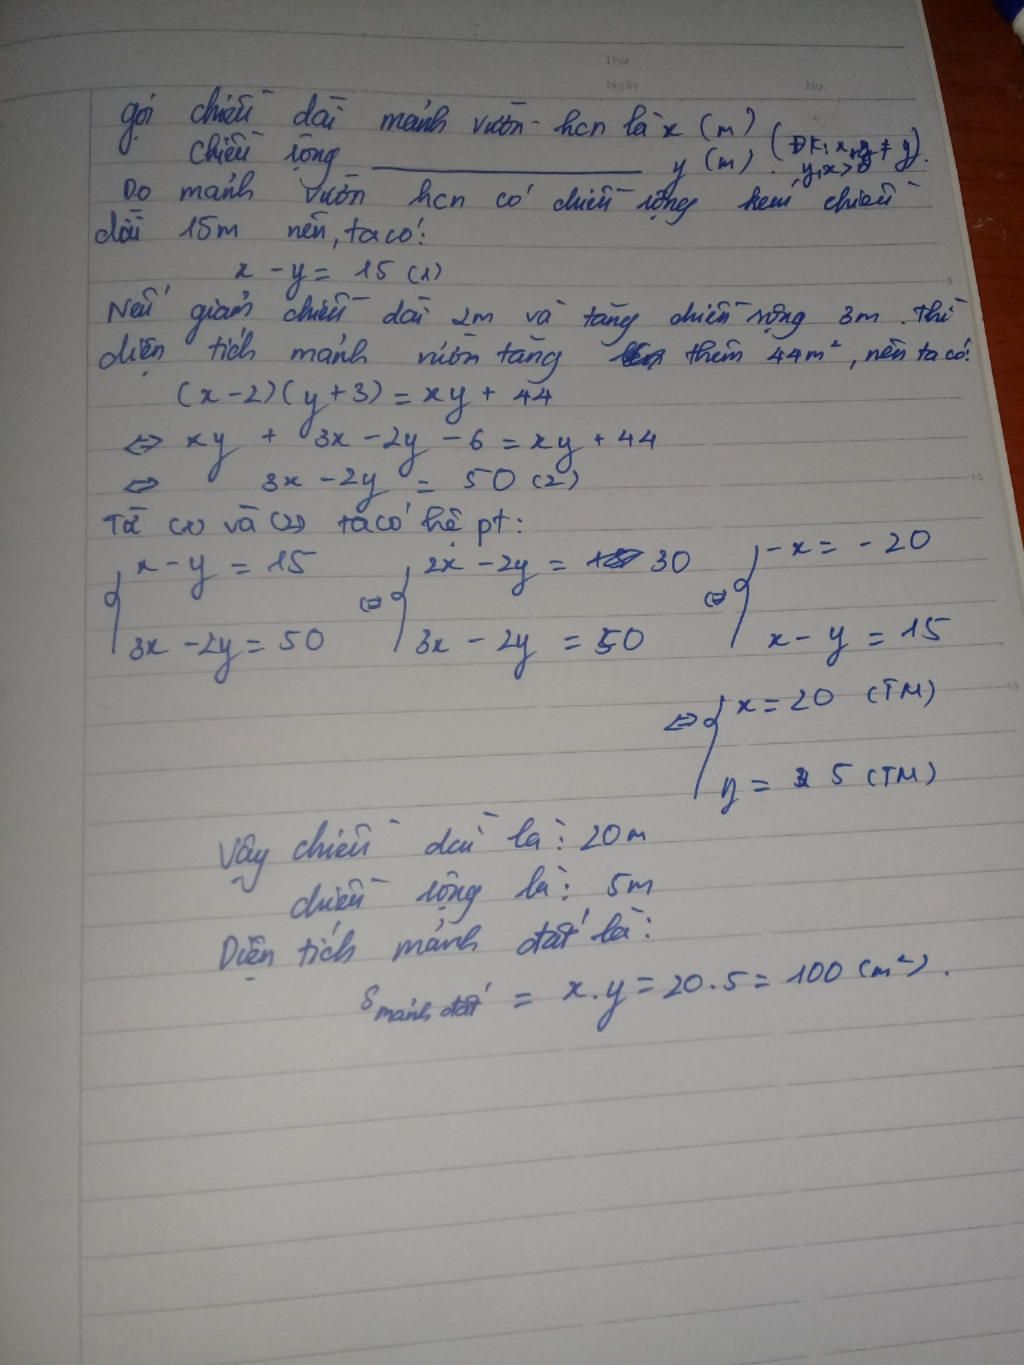 Thứ
Ngày No.
gọi chiều dài mảnh vườn hcn là x (m)
chiều rộng y (m) (ĐK: x ≠ y. y,x>0
Do mảnh vườn hcn có chiều rộng kém chiều
dài 15m nên, ta có:
x - y = 15 (1)
Nếu giảm chiều dài 2m và tăng chiều rộng 3m. Thì
diện tích mảnh vườn tăng thêm 44m², nên ta có:
(x-2)(y+3) = xy + 44
⇔ xy + 3x - 2y - 6 = xy + 44
⇔ 3x - 2y = 50 (2)
Từ (1) và (2) ta có hệ pt:
{ x - y = 15 ⇔ { 2x - 2y = 30 ⇔ { -x = -20
3x - 2y = 50 3x - 2y = 50 x - y = 15
⇔ { x = 20 (TM)
y = 5 (TM)
Vậy chiều dài là: 20m
chiều rộng là: 5m
Diện tích mảnh đất là:
S mảnh đất = x.y = 20.5 = 100 (m²).